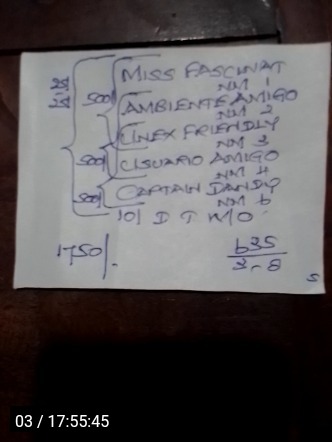 MISS FASCINAT
NM 1
500
AMBIENTE AMIGO
NM 2
LINEX FRIENDLY
NM 3
500
USUARIO AMIGO
NM 4
500
CAPTAIN DANDY
NM 6
101 D T M/O
1750/.
635
3-8
5
03 / 17:55:45